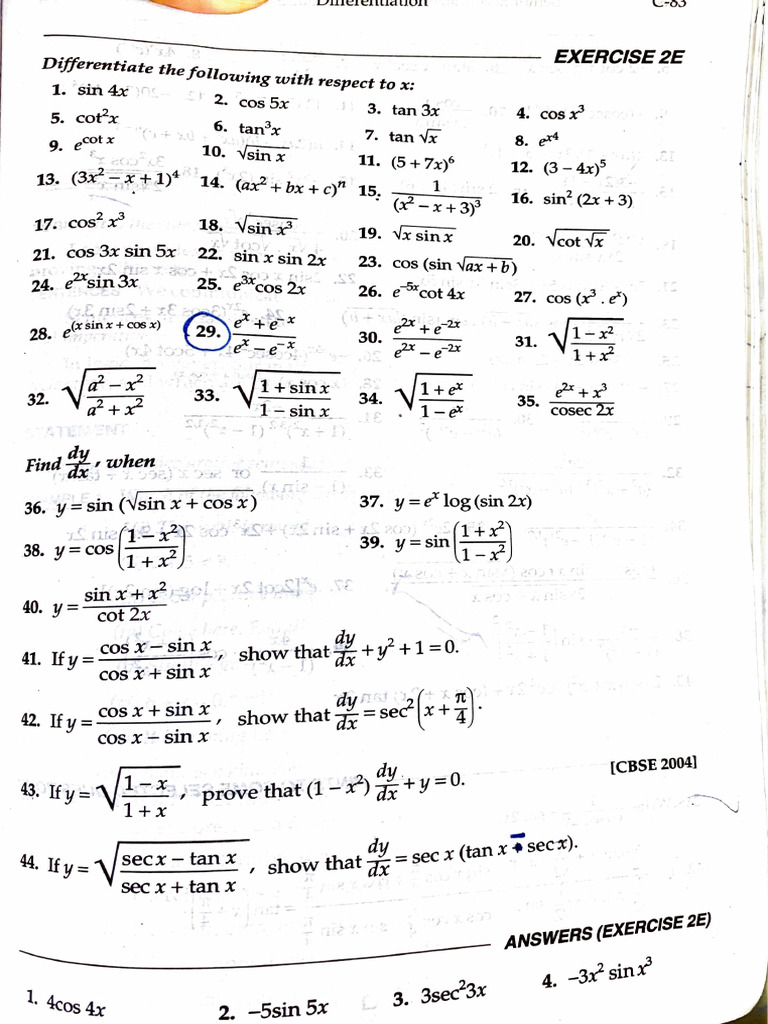 Differentiation C-83
EXERCISE 2E
Differentiate the following with respect to x:
1. sin 4x 2. cos 5x 3. tan 3x 4. cos x³
5. cot²x 6. tan³x 7. tan √x 8. e^{x4}
9. e^{cot x} 10. √(sin x) 11. (5 + 7x)⁶ 12. (3 – 4x)⁵
13. (3x² – x + 1)⁴ 14. (ax² + bx + c)ⁿ 15. 1/(x² – x + 3)³ 16. sin² (2x + 3)
17. cos² x³ 18. √(sin x³) 19. √(x sin x) 20. √(cot √x)
21. cos 3x sin 5x 22. sin x sin 2x 23. cos (sin √(ax + b))
24. e^{2x} sin 3x 25. e^{3x} cos 2x 26. e^{–5x} cot 4x 27. cos (x³ . e^x)
28. e^{(x sin x + cos x)} 29. (e^x + e^{–x})/(e^x – e^{–x}) 30. (e^{2x} + e^{–2x})/(e^{2x} – e^{–2x}) 31. √((1 – x²)/(1 + x²))
32. √((a² – x²)/(a² + x²)) 33. √((1 + sin x)/(1 – sin x)) 34. √((1 + e^x)/(1 – e^x)) 35. (e^{2x} + x³)/(cosec 2x)
Find dy/dx, when
36. y = sin (√(sin x + cos x)) 37. y = e^x log (sin 2x)
38. y = cos ((1 – x²)/(1 + x²)) 39. y = sin ((1 + x²)/(1 – x²))
40. y = (sin x + x²)/(cot 2x)
41. If y = (cos x – sin x)/(cos x + sin x), show that dy/dx + y² + 1 = 0.
42. If y = (cos x + sin x)/(cos x – sin x), show that dy/dx = sec² (x + π/4).
43. If y = √((1 – x)/(1 + x)), prove that (1 – x²) dy/dx + y = 0. [CBSE 2004]
44. If y = √((sec x – tan x)/(sec x + tan x)), show that dy/dx = sec x (tan x – sec x).
ANSWERS (EXERCISE 2E)
1. 4cos 4x 2. –5sin 5x 3. 3sec²3x 4. –3x² sin x³